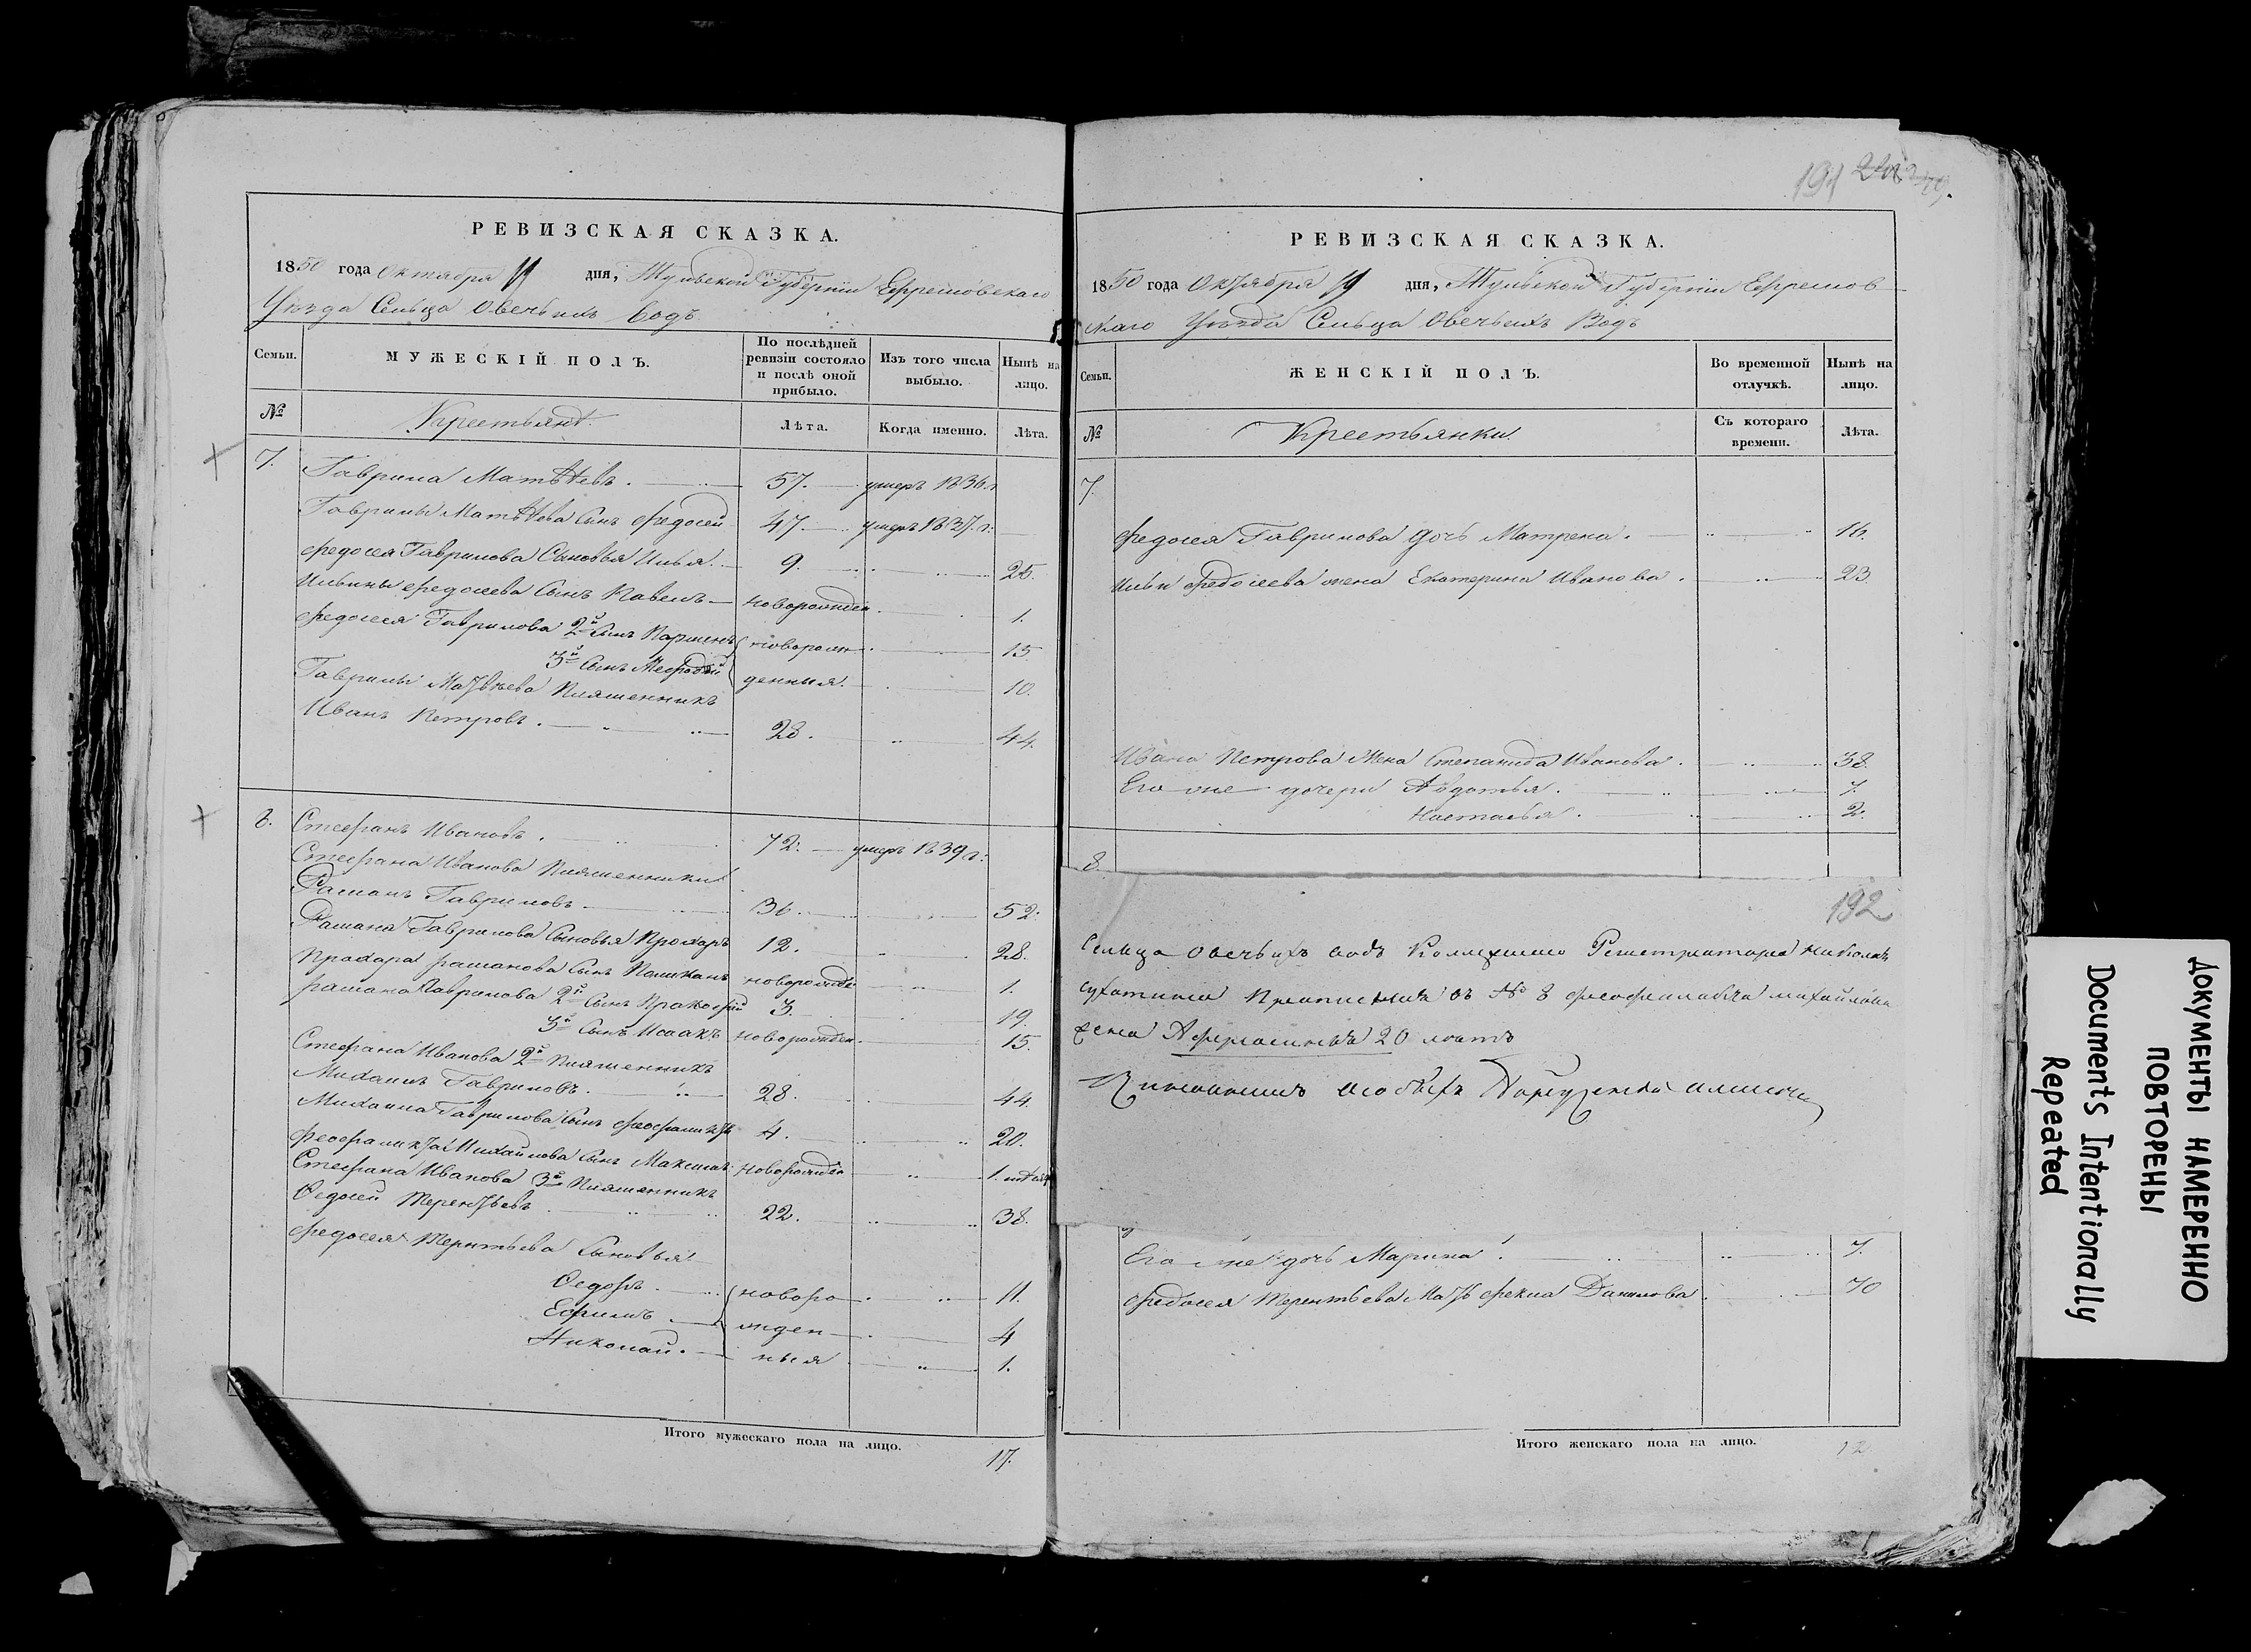 РЕВИЗСКАЯ СКАЗКА.
1850 года Октября 19 дня, Тульской Губерніи Ефремовскаго
Уѣзда Сельца Овечьихъ водъ
Семьи.
МУЖЕСКІЙ ПОЛЪ.
По послѣдней ревизіи состояло и послѣ оной прибыло.
Изъ того числа выбыло.
Нынѣ на лицо.
№
Крестьяне.
Лѣта.
Когда именно.
Лѣта.
7. Гаврила Матвѣевъ. 57. умеръ 1836 г
Гаврилы Матвѣева Сынъ Федосей 47. умеръ 1837. г:
Федосея Гаврилова Сыновья Илья. 9. 25.
Ильины Федосеева Сынъ Павелъ новорожден. 1.
Федосея Гаврилова 2й Сынъ Парменъ новорож 15
3й Сынъ Мефодій денныя. 10.
Гаврилы Матвѣева Племянникъ
Иванъ Петровъ. 28. 44.
8. Стефанъ Ивановъ. 72. умеръ 1839 г:
Стефана Иванова Племянники
Раманъ Гавриловъ. 36. 52.
Рамана Гаврилова Сыновья Прохаръ 12. 28.
Прохара Раманова Сынъ новорожден 1.
Рамана Гаврилова 2й Сынъ Прокофій 3. 19.
3й Сынъ Исаакъ новорожден. 15.
Стефана Иванова 2й Племянникъ
Михаилъ Гавриловъ. 28. 44.
Михаила Гаврилова Сынъ Феофилактъ 4. 20.
Феофилакта Михайлова Сынъ Максимъ новорожден 1.
Стефана Иванова 3й Племянникъ
Федосей Терентьевъ 22. 38.
Федосея Терентьева Сыновья
Федоръ. новоро 11.
Ефимъ. жден 4
Николай. ныя 1.
Итого мужескаго пола на лицо. 17.
191
РЕВИЗСКАЯ СКАЗКА.
1850 года Октября 19 дня, Тульской Губерніи Ефремов
скаго Уѣзда Сельца Овечьихъ Водъ
Семьи.
ЖЕНСКІЙ ПОЛЪ.
Во временной отлучкѣ.
Нынѣ на лицо.
№
Крестьянки.
Съ котораго времени.
Лѣта.
7.
Федосея Гаврилова дочь Матрена. 16.
Ильи Федосеева жена Екатерина Иванова. 23.
Ивана Петрова Жена Степанида Иванова. 38.
Его же дочери Авдотья. 7.
Настасья. 2.
8.
192
Сельца Овечьихъ водъ Николая
въ № 8 Михайлова
жена 20 лѣтъ
Его же дочь Марина. 7.
Федосея Терентьева Мать Фекла Данилова. 70
Итого женскаго пола на лицо. 12
ДОКУМЕНТЫ НАМЕРЕННО
ПОВТОРЕНЫ
Documents Intentionally
Repeated